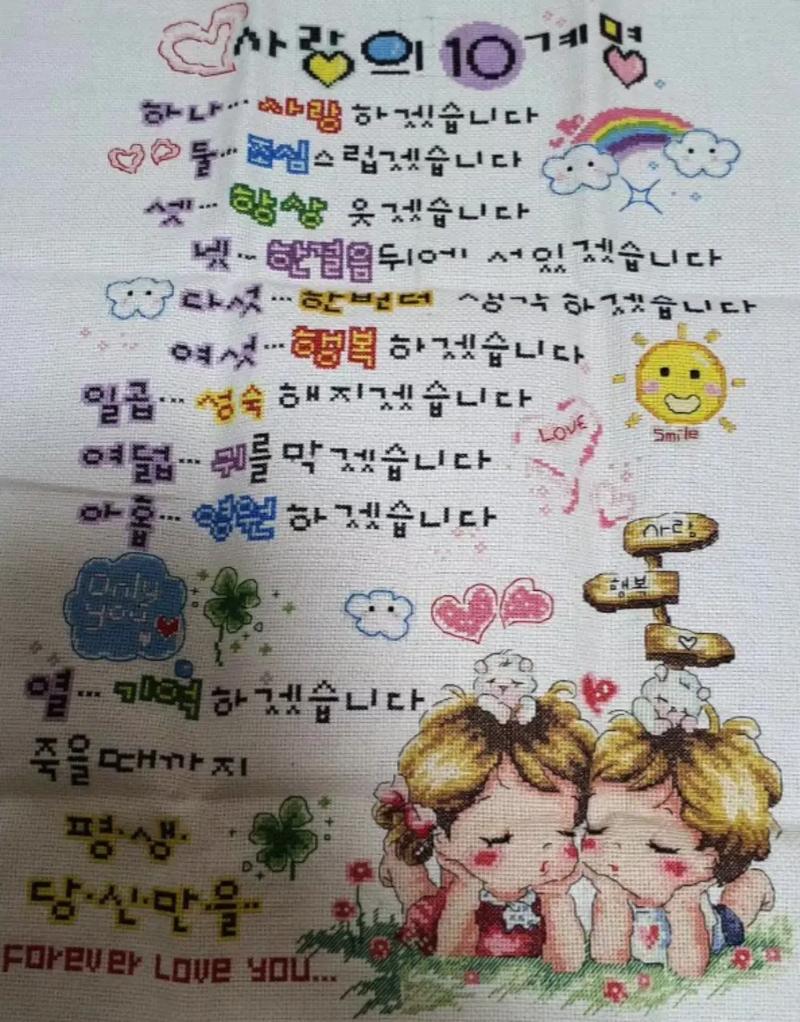 사랑의 10계명
하나... 사랑 하겠습니다
둘... 조심스럽겠습니다
셋... 항상 웃겠습니다
넷... 한걸음 뒤에 서있겠습니다
다섯... 한번더 생각 하겠습니다
여섯... 행복 하겠습니다
Smile
일곱... 성숙 해지겠습니다
LOVE
여덟... 귀를 막겠습니다
아홉... 응원 하겠습니다
사랑
행복
Only
you..
열... 기억 하겠습니다
죽을때까지
평·생·
당·신·만·을..
Forever Love you...